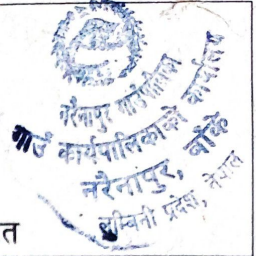 नरैनापुर गाउँपालिका
गाउँ कार्यपालिकाको कार्यालय
नरैनापुर, बाँके
लुम्बिनी प्रदेश, नेपाल
त